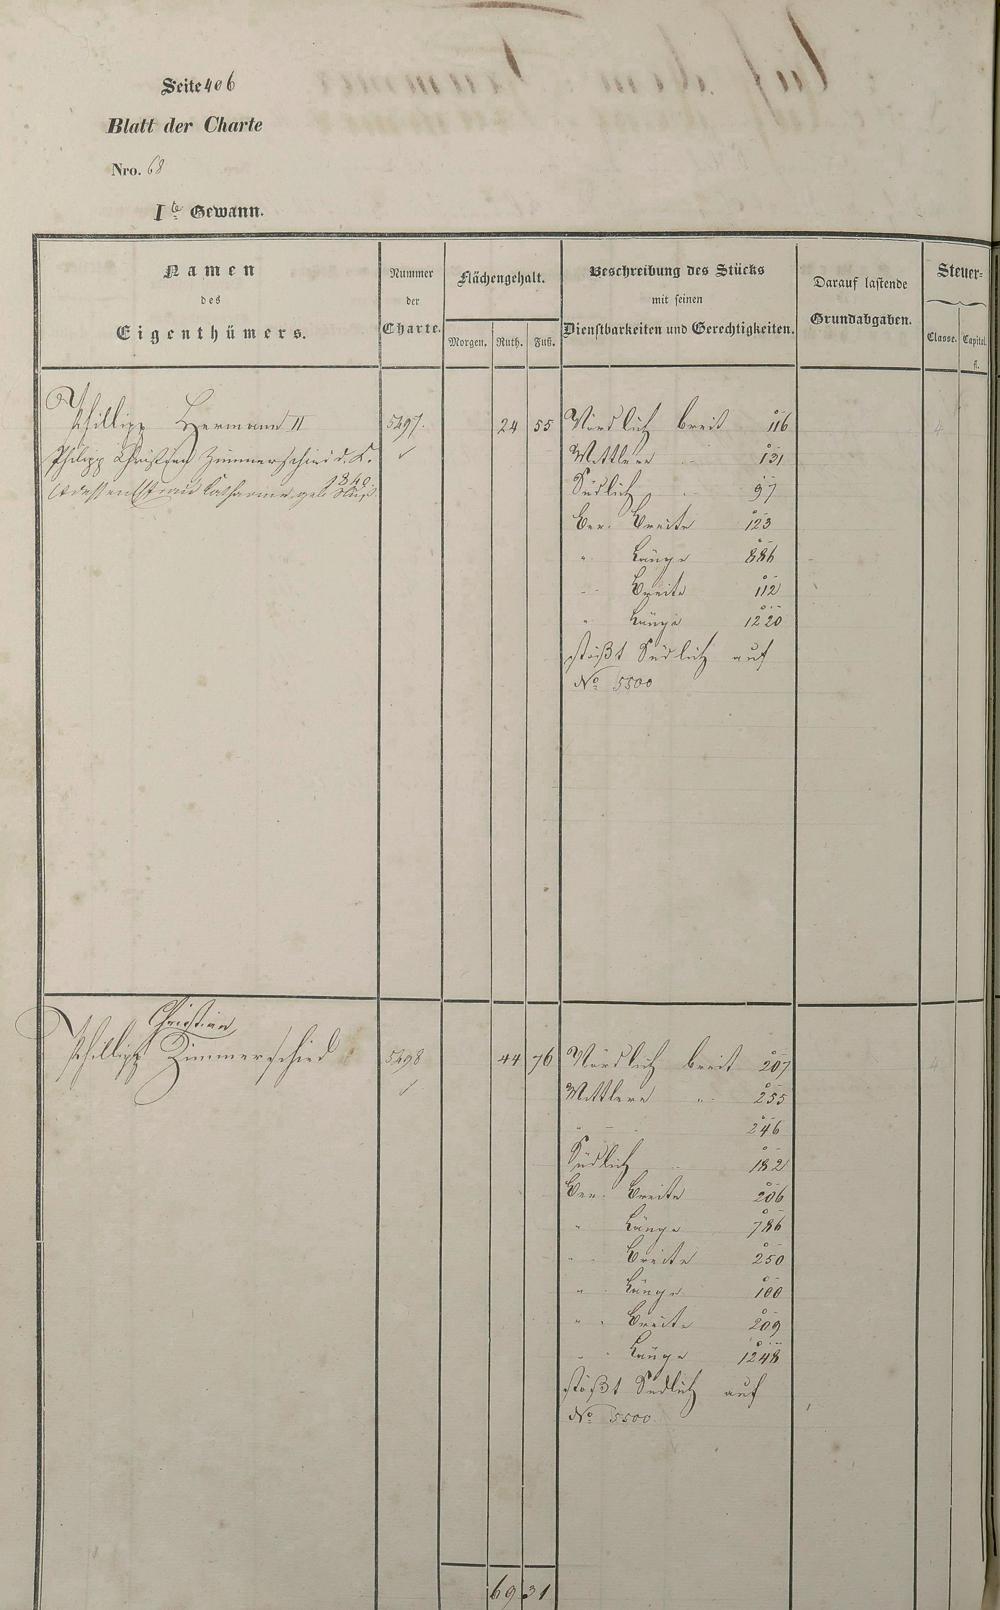 Seite 406
Blatt der Charte
Nro. 68
Ite Gewann.
Namen
des
Eigenthümers.
Nummer
der
Charte.
Flächengehalt.
Morgen. Ruth. Fuß.
Beschreibung des Stücks
mit seinen
Dienstbarkeiten und Gerechtigkeiten.
Darauf lastende
Grundabgaben.
Steuer-
Classe. Capital.
fl.
Phillipp Hermann II 5497. 24 55 Nördlich breit 116 4
Philipp Christian Zimmerschied d. K. Mittlere " 131
1840
u dessen Ehefrau Catharine geb. Südlich " 97
Ber. Breite 123
" Länge 886
" Breite 112
" Länge 1220
stößt Südlich auf
No 5500
Christian
Phillipp Zimmerschied 5498 44 76 Nördlich breit 207 4
Mittlere " 255
" " 246
Südlich " 182
Ber. Breite 206
" Länge 786
" Breite 250
" Länge 100
" Breite 209
" Länge 1248
stößt Südlich auf
No 5500
69 31